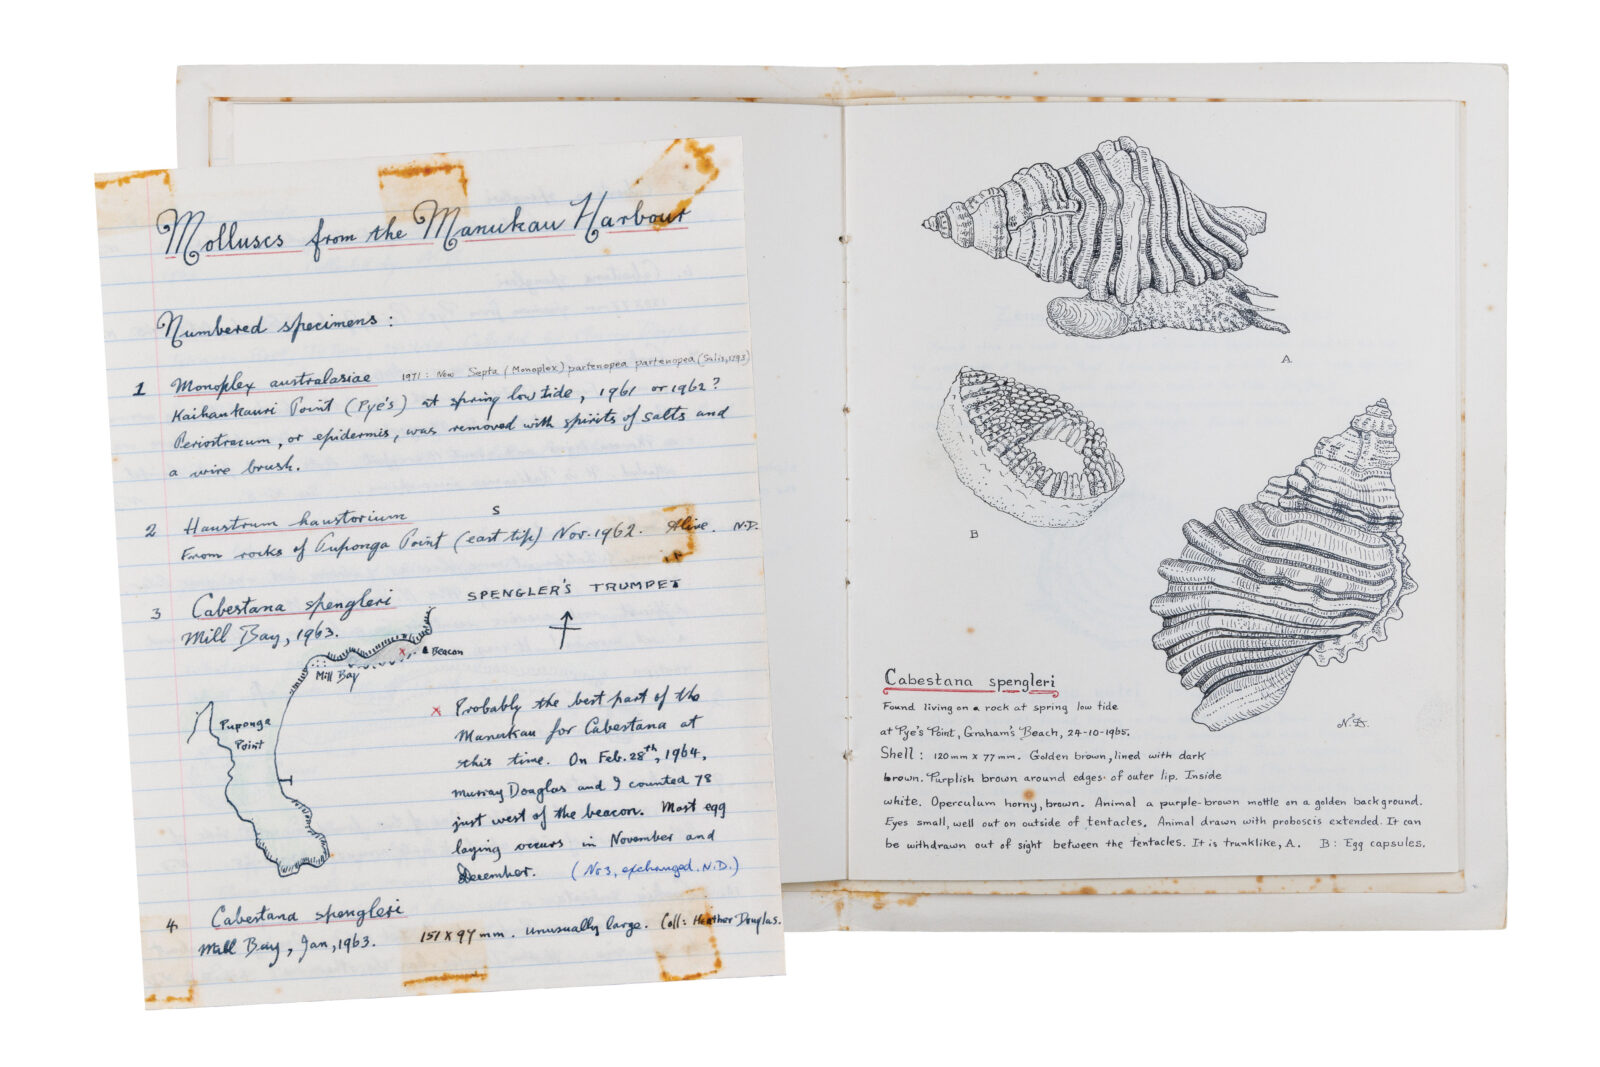 Molluscs from the Manukau Harbour
Numbered specimens:
1 Monoplex australasiae 1971: Now Septa (Monoplex) partenopea partenopea (Salis, 1793)
Kaihaukauri Point (Pye's) at spring low tide, 1961 or 1962?
Periostracum, or epidermis, was removed with spirits of salts and
a wire brush.
2 Haustrum haustorium S
From rocks of Puponga Point (east tip) Nov. 1962. Alive. N.D.
3 Cabestana spengleri SPENGLER'S TRUMPET
Mill Bay, 1963.
Beacon
Mill Bay
Puponga
Point
x Probably the best part of the
Manukau for Cabestana at
this time. On Feb. 28th, 1964,
Murray Douglas and I counted 78
just west of the beacon. Most egg
laying occurs in November and
December. (No 3, exchanged. N.D.)
4 Cabestana spengleri
Mill Bay, Jan, 1963. 151 x 97 mm. unusually large. Coll: Heather Douglas.
A.
B
Cabestana spengleri
Found living on a rock at spring low tide
at Pye's Point, Graham's Beach, 24-10-1965.
Shell: 120mm x 77mm. Golden brown, lined with dark
brown. Purplish brown around edges of outer lip. Inside
white. Operculum horny, brown. Animal a purple-brown mottle on a golden background.
Eyes small, well out on outside of tentacles. Animal drawn with proboscis extended. It can
be withdrawn out of sight between the tentacles. It is trunklike, A. B: Egg capsules.
N.D.